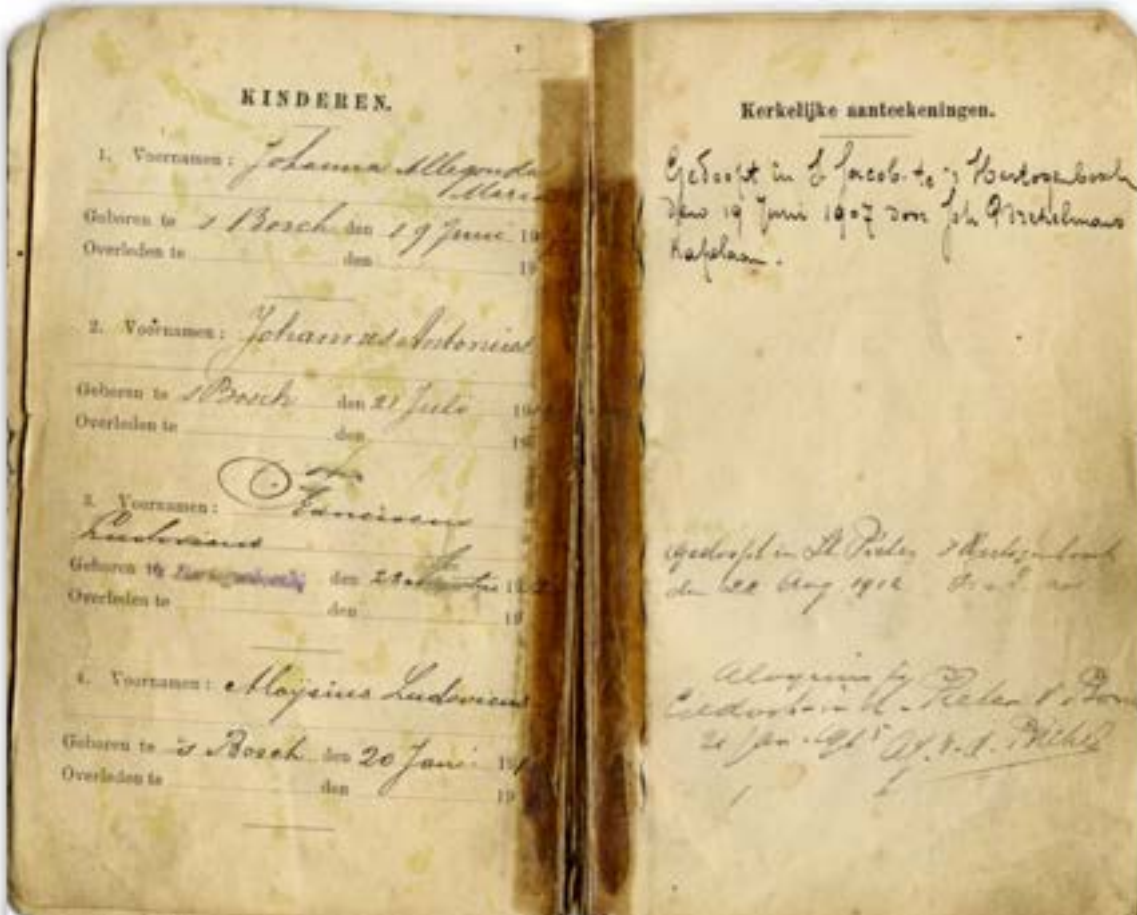 KINDEREN.
1. Voornamen: Johanna Allegonda
Maria
Geboren te s Bosch den 19 Juni 19
Overleden te den 19
2. Voornamen: Johannes Antonius
Geboren te s Bosch den 21 Juli 19
Overleden te den 19
3. Voornamen: Franciscus
Ludovicus
Geboren te den 28 19
Overleden te den 19
4. Voornamen: Aloysius Ludovicus
Geboren te 's Bosch den 20 Jani 19
Overleden te den 19
Kerkelijke aanteekeningen.
Gedoopt in S Jacob te 's Hertogenbosch
den 19 Juni 1907 door Joh
Kapelaan.
gedoopt in St Pieter 's Hertogenbosch
den Aug 1912
Aloysius
Gedoopt in Pieter
Jan